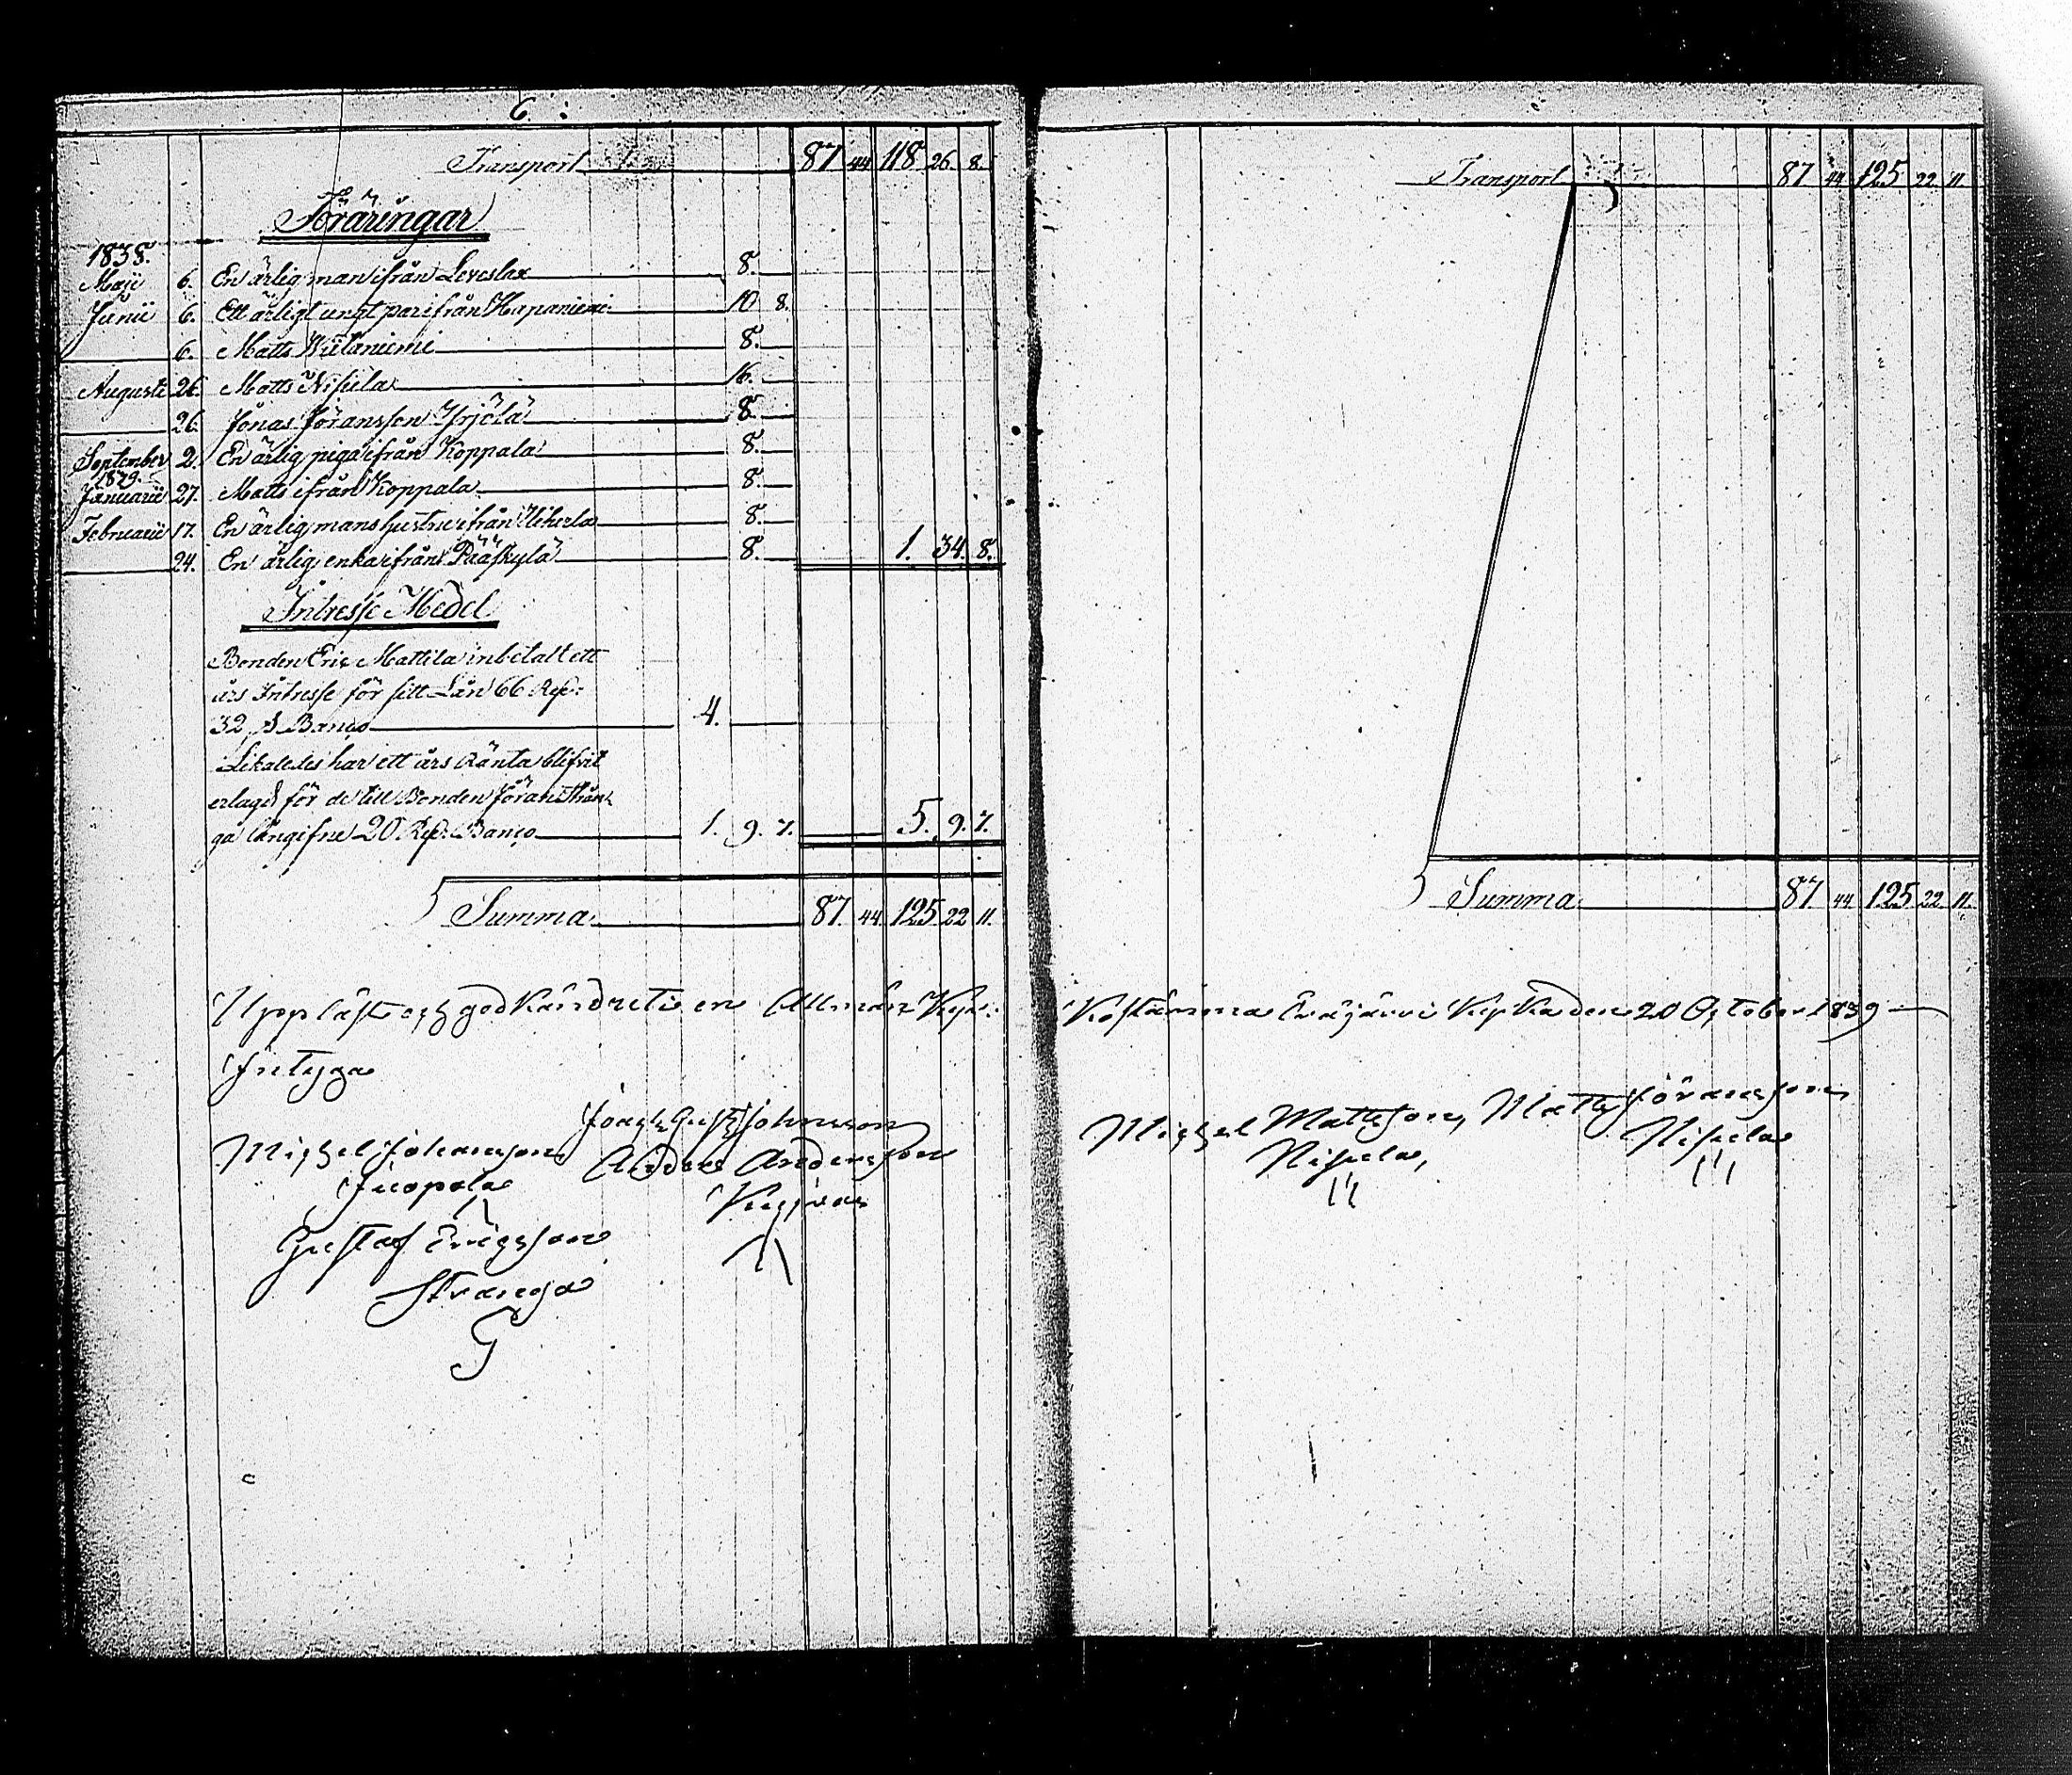 6:
Transport 87 44 118 26. 8.
Föräringar
1838.
Maji 6. En ärlig man ifrån Leveslax 8.
Junii 6. Ett ärligt ungt par ifrån Hapaniemi 10 8.
6. Matts Wiitaniemi 8.
Augusti 26. Matts Nisula 16.
26. Jonas Jöransson Yrjölä 8.
September 2. En ärlig piga ifrån Koppala 8.
1839.
Januarii 27. Matts ifrån Koppala 8.
Februarii 17. En ärlig mans hustru ifrån Uiherla 8.
24. En ärlig enka ifrån Pääskylä 8. 1. 34. 8.
Intresse Medel
Bonden Eric Mattila inbetalt ett
års Intresse för sitt Lån 66 Rd:
32 s Banco 4.
Likaledes har ett års Ränta blifvit
erlagd för de till Bonden Jöran Strån-
ga långifne 20 Rd: Banco 1. 9. 7. 5. 9. 7.
Summa 87. 44. 125 22 11.
Uppläst och godkändt i en Allmän Kyrko
Intyga
Joseph Gust Johnsson
Michel Johansson Anders Andersson
Juopola
Gustaf Ericsson
Stranga
G
Transport 87 44 125 22 11
Summa 87 44 125 22 11.
Kostämma Eräjärvi Kyrka den 20 October 1839
Michel Mattsson, Matts Jöransson
Nisula, Nisula